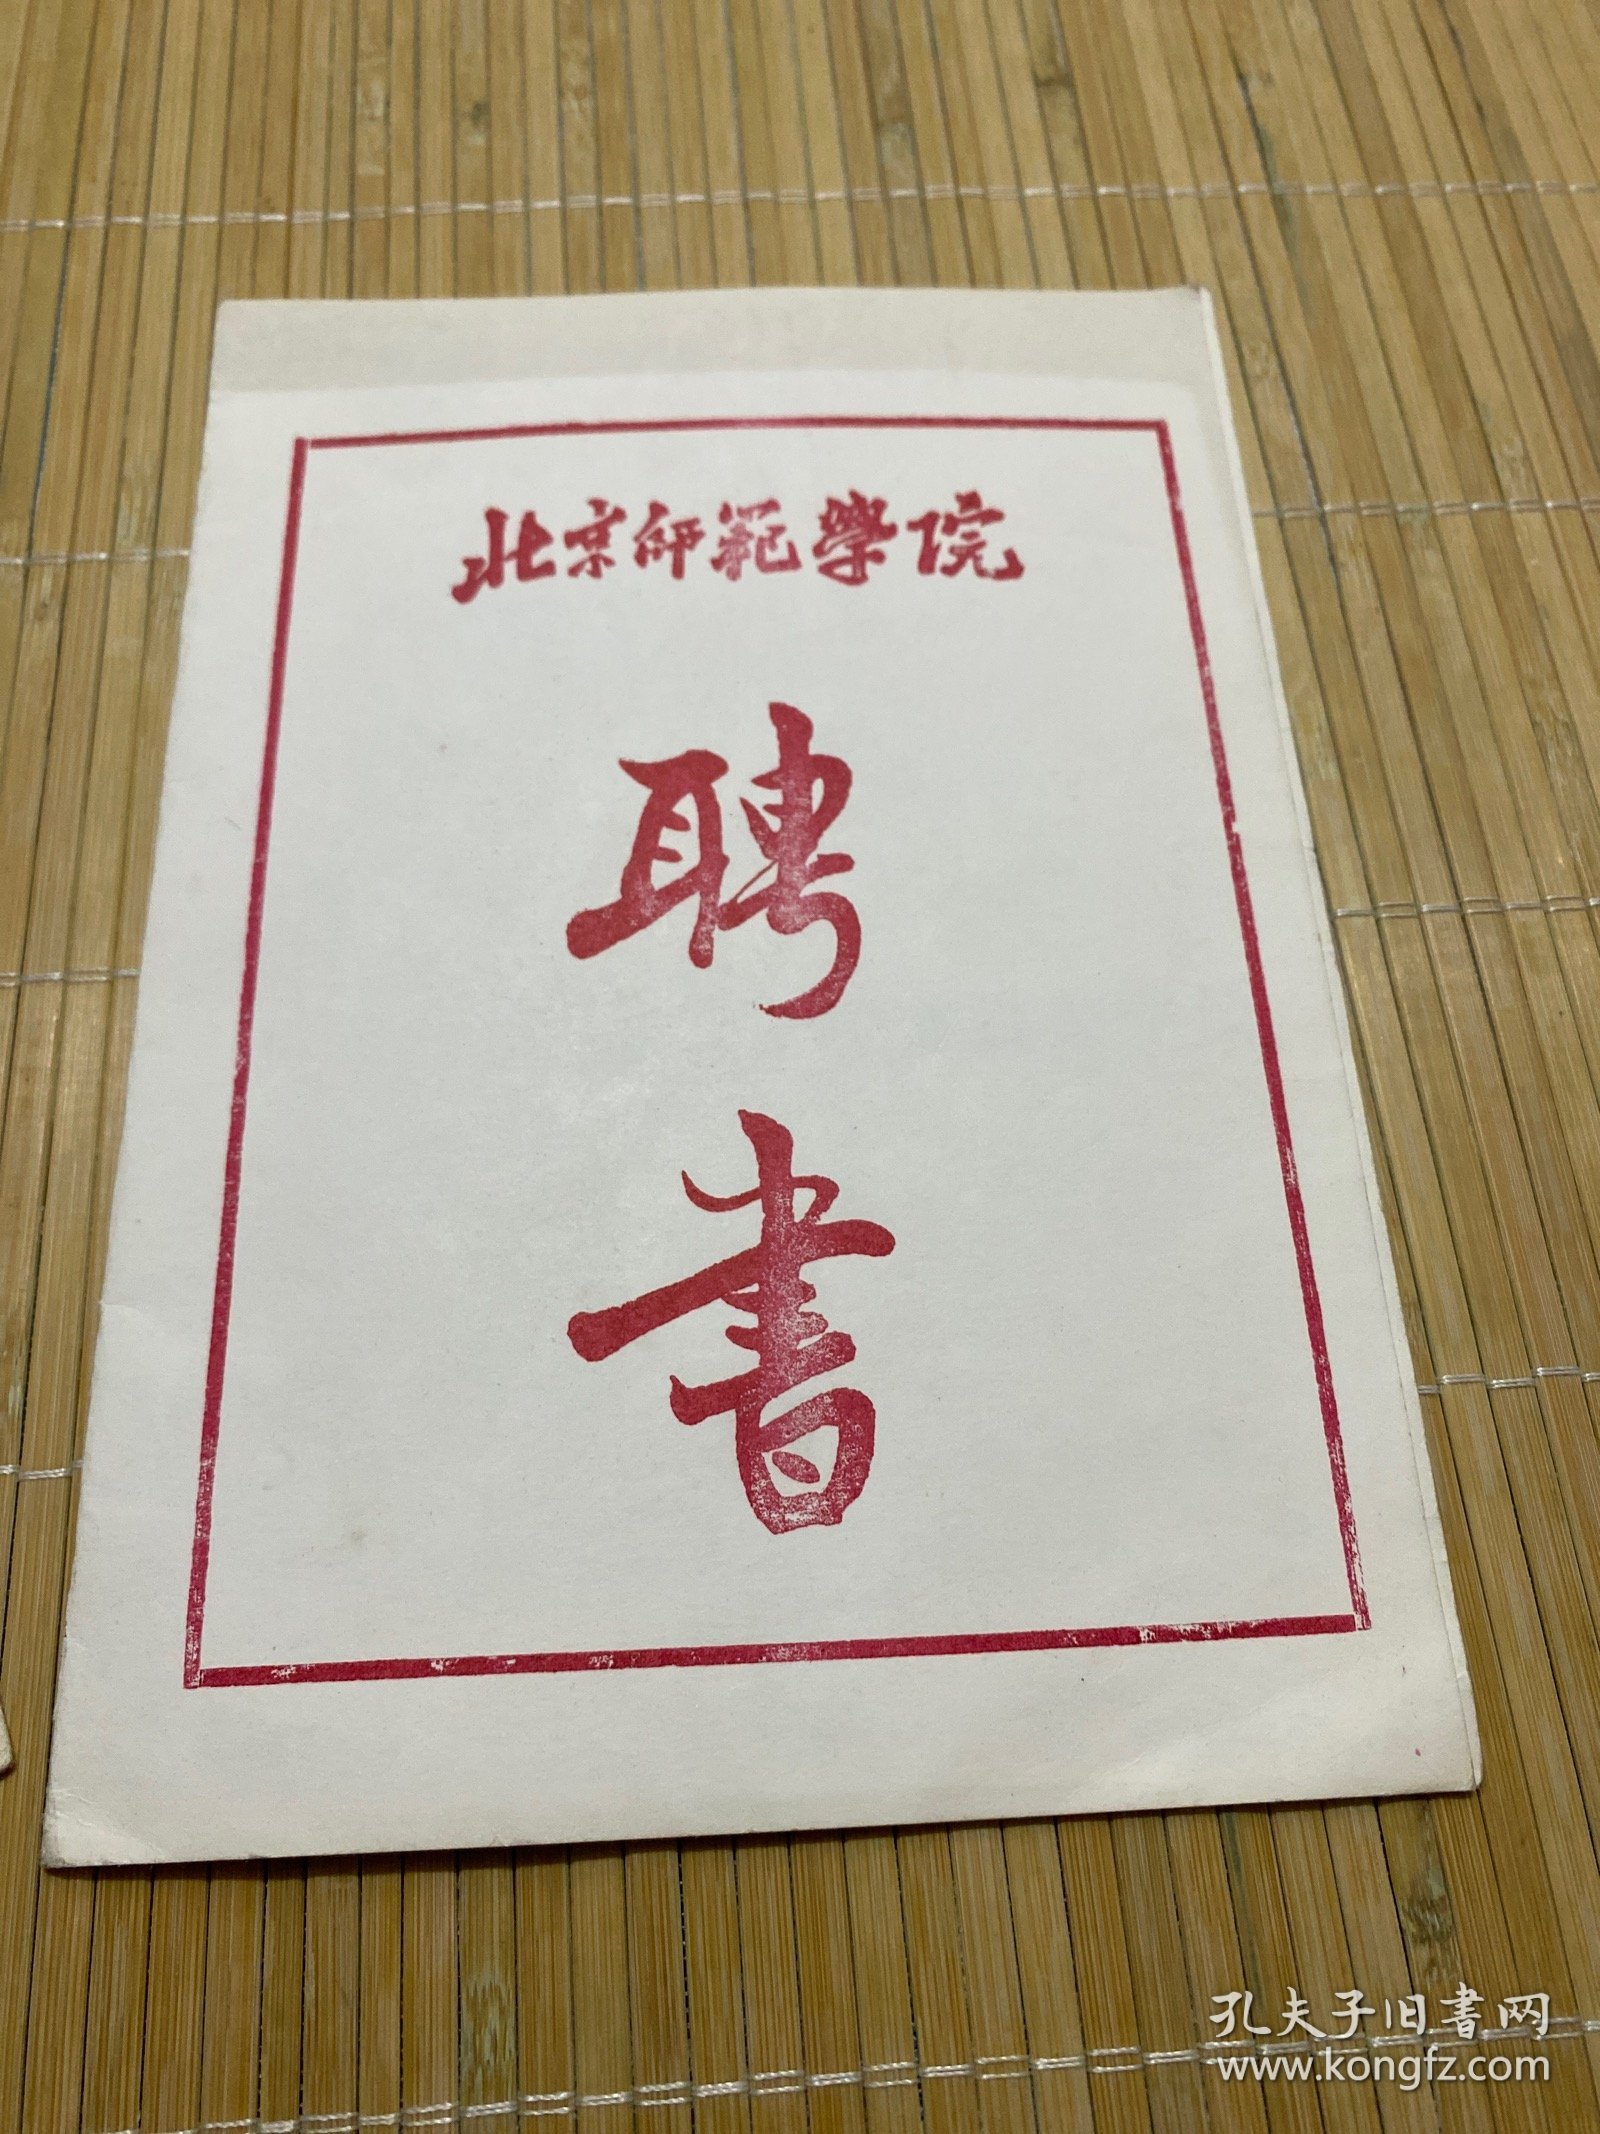 北京师範學院
聘
书
孔夫子旧书网
www.kongfz.com